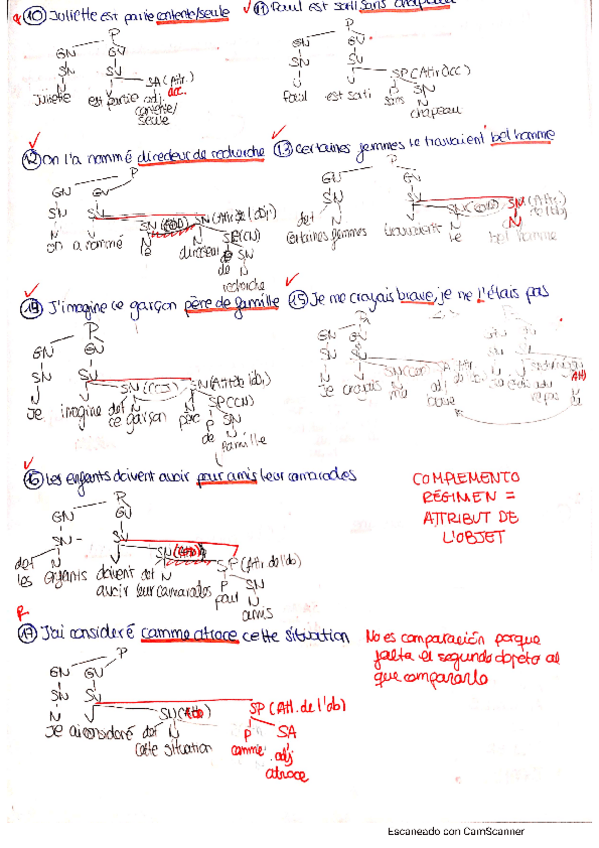 (10) Juliette est partie contente/seule
(11) Paul est sorti sans chapeau
P
P
GN GV
GN GV
SN SV
SN SV
SA (Attr. acc.
SP (Attr acc)
Juliette est partie adj contente/seule
Paul est sorti sans N chapeau
(12) On l'a nommé directeur de recherche
(13) Certaines femmes le trouvaient bel homme
P
P
GN GV
GN GV
SN SV
SN SV
SN (COD) SN (Attr. de l'obj)
SN (COD) SN (Attr. de l'obj)
N V N N SP (CN)
det N V N N
on a nommé le directeur P SN
certaines femmes trouvaient le bel homme
de N
recherche
(14) J'imagine ce garçon père de famille
(15) Je me croyais brave, je ne l'étais pas
P
GN GV
SN SV
SN (Attr de l'obj)
N V det N N SP (CN)
Je imagine ce garçon père P SN
Je croyais me adj
brave
de N
famille
(16) Les enfants doivent avoir pour amis leur camarades
P
GN GV
SN SV
SP (Attr de l'obj)
det N V det N P SN
les enfants doivent avoir leur camarades pour N
amis
COMPLEMENTO
RÉGIMEN =
ATTRIBUT DE
L'OBJET
(17) J'ai consideré comme atroce cette situation
P
GN GV
SN SV
SP (Att. de l'obj)
N V det N P SA
Je ai consideré cette situation comme adj
atroce
No es comparación porque
falta el segundo objeto al
que compararlo
Escaneado con CamScanner